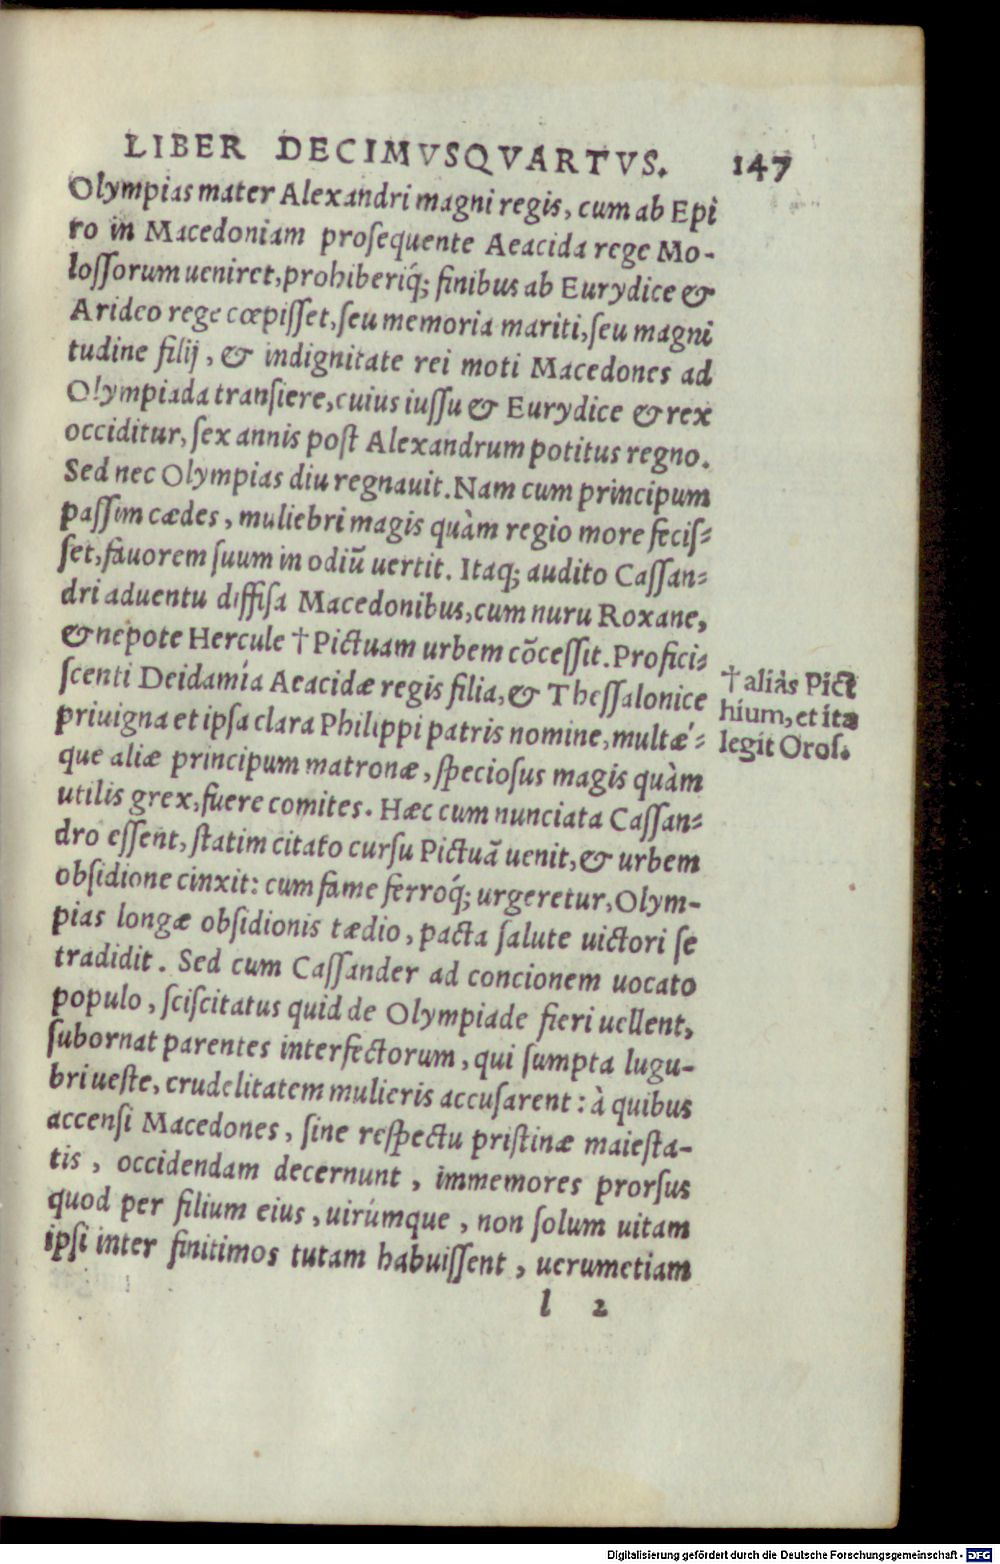 LIBER DECIMVSQVARTVS. 147
Olympias mater Alexandri magni regis, cum ab Epi
ro in Macedoniam proſequente Aeacida rege Mo-
loſſorum ueniret, prohiberiq́; finibus ab Eurydice &
Arideo rege cœpiſſet, ſeu memoria mariti, ſeu magni
tudine filij, & indignitate rei moti Macedones ad
Olympiada tranſiere, cuius iuſſu & Eurydice & rex
occiditur, ſex annis poſt Alexandrum potitus regno.
Sed nec Olympias diu regnauit. Nam cum principum
paſſim cædes, muliebri magis quàm regio more feciſ-
ſet, fauorem ſuum in odiũ uertit. Itaq; audito Caſſan-
dri aduentu diffiſa Macedonibus, cum nuru Roxane,
& nepote Hercule † Pictuam urbem cõceſſit. Profici-
ſcenti Deidamía Aeacidæ regis filia, & Theſſalonice
priuigna et ipſa clara Philippi patris nomine, multǽ-
que aliæ principum matronæ, ſpecioſus magis quàm
utilis grex, fuere comites. Hæc cum nunciata Caſſan-
dro eſſent, ſtatim citato curſu Pictuã uenit, & urbem
obſidione cinxit: cum fame ferroq́; urgeretur, Olym-
pias longæ obſidionis tædio, pacta ſalute uictori ſe
tradidit. Sed cum Caſſander ad concionem uocato
populo, ſciſcitatus quid de Olympiade fieri uellent,
ſubornat parentes interfectorum, qui ſumpta lugu-
bri ueſte, crudelitatem mulieris accuſarent: à quibus
accenſi Macedones, ſine reſpectu priſtinæ maieſta-
tis, occidendam decernunt, immemores prorſus
quod per filium eius, uirúmque, non ſolum uitam
ipſi inter finitimos tutam habuiſſent, uerumetiam
l 2
† aliàs Pict
hium, et ita
legit Oroſ.
Digitalisierung gefördert durch die Deutsche Forschungsgemeinschaft - DFG